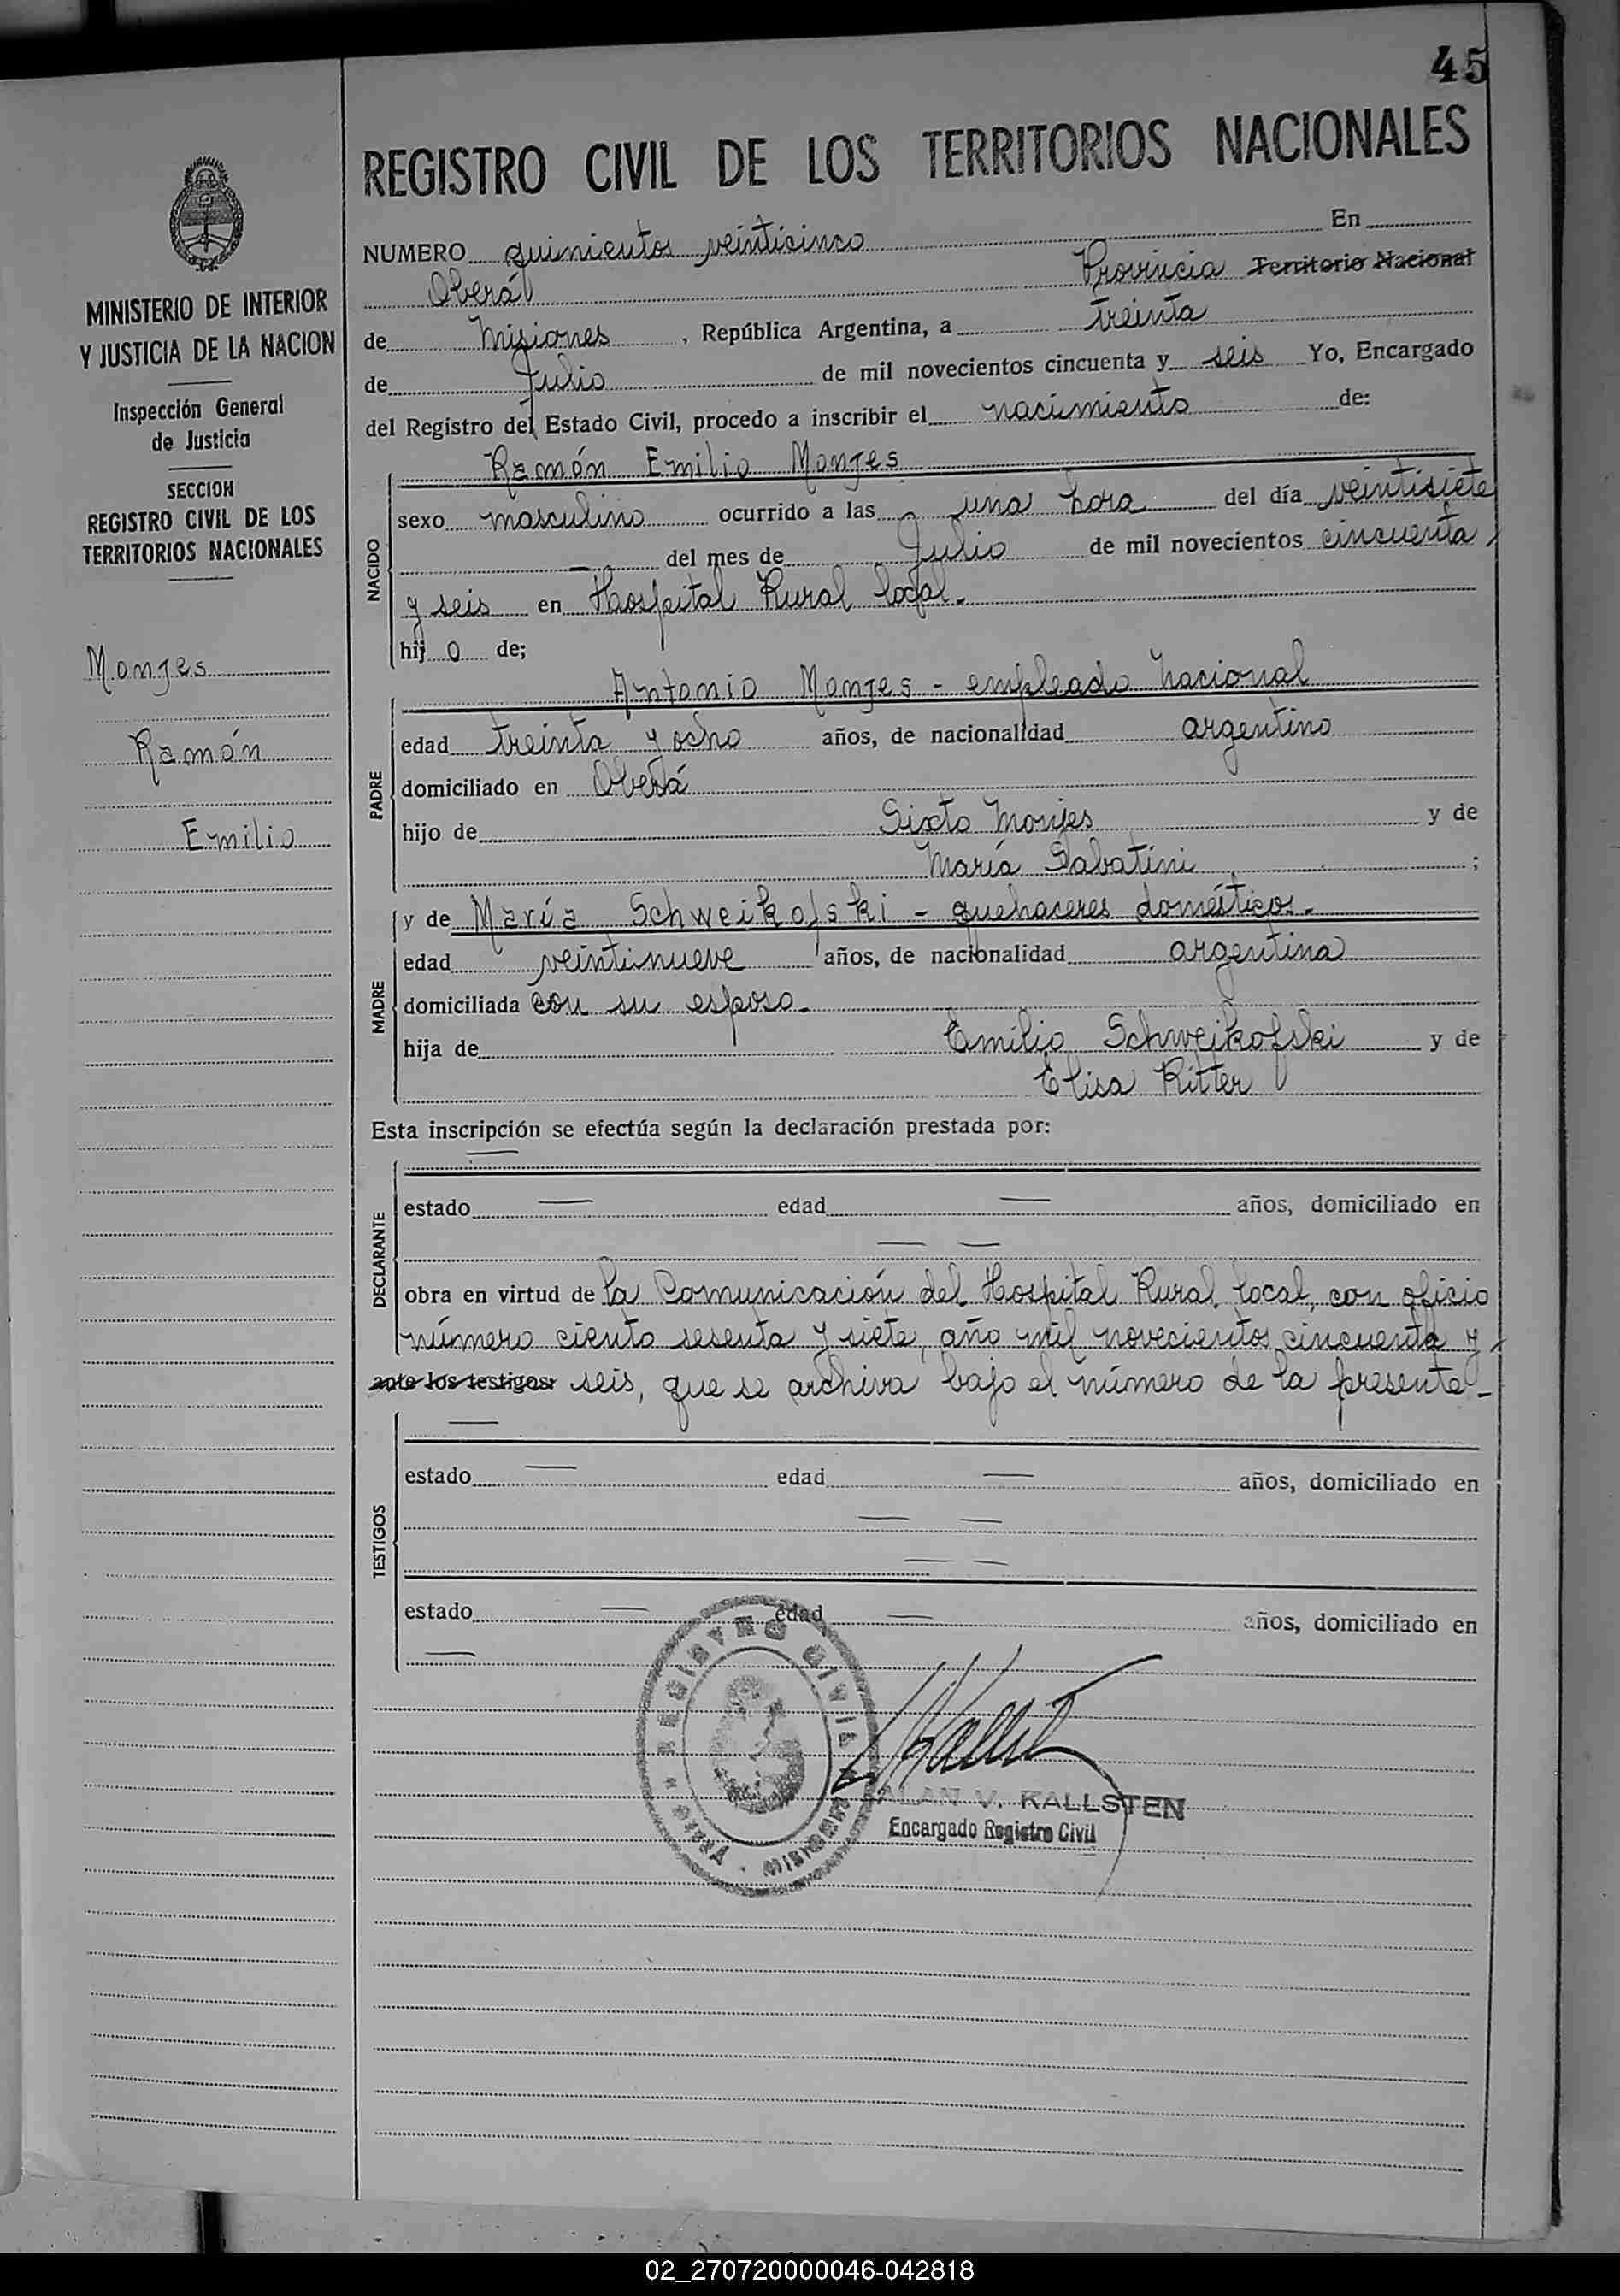 45
REGISTRO CIVIL DE LOS TERRITORIOS NACIONALES
MINISTERIO DE INTERIOR
Y JUSTICIA DE LA NACION
Inspección General
de Justicia
SECCION
REGISTRO CIVIL DE LOS
TERRITORIOS NACIONALES
Monjes
Ramón
Emilio
NUMERO quinientos veinticinco En
Oberá Provincia Territorio Nacional
de Misiones, República Argentina, a treinta
de Julio de mil novecientos cincuenta y seis Yo, Encargado
del Registro del Estado Civil, procedo a inscribir el nacimiento de:
NACIDO
Ramón Emilio Monjes
sexo masculino ocurrido a las una hora del día veintisiete
— del mes de Julio de mil novecientos cincuenta
y seis en Hospital Rural local.
hijo de;
PADRE
Antonio Monjes - empleado nacional
edad treinta y ocho años, de nacionalidad argentino
domiciliado en Oberá
hijo de Sixto Monjes y de
María Sabatini ;
MADRE
y de María Schweikofski - quehaceres domésticos.
edad veintinueve años, de nacionalidad argentina
domiciliada con su esposo.
hija de Emilio Schweikofski y de
Elisa Ritter
Esta inscripción se efectúa según la declaración prestada por:
DECLARANTE
—
estado — edad — años, domiciliado en
— —
obra en virtud de la Comunicación del Hospital Rural local, con oficio
número ciento sesenta y siete, año mil novecientos cincuenta y
ante los testigos: seis, que se archiva bajo el número de la presente-
TESTIGOS
—
estado — edad — años, domiciliado en
— —
— —
estado — edad — años, domiciliado en
—
REGISTRO CIVIL
OBERA - MISIONES
ALAN V. KALLSTEN
Encargado Registro Civil
02_270720000046-042818